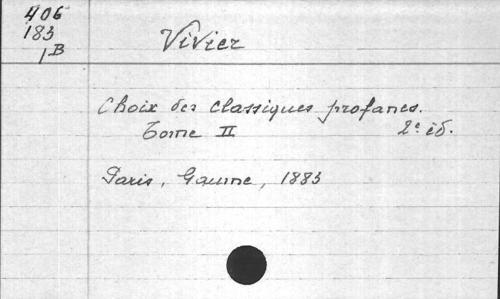 406
183
1B
Vivier
Choix des classiques profanes.
Tome II 2e éd.
Paris, Gaume, 1883